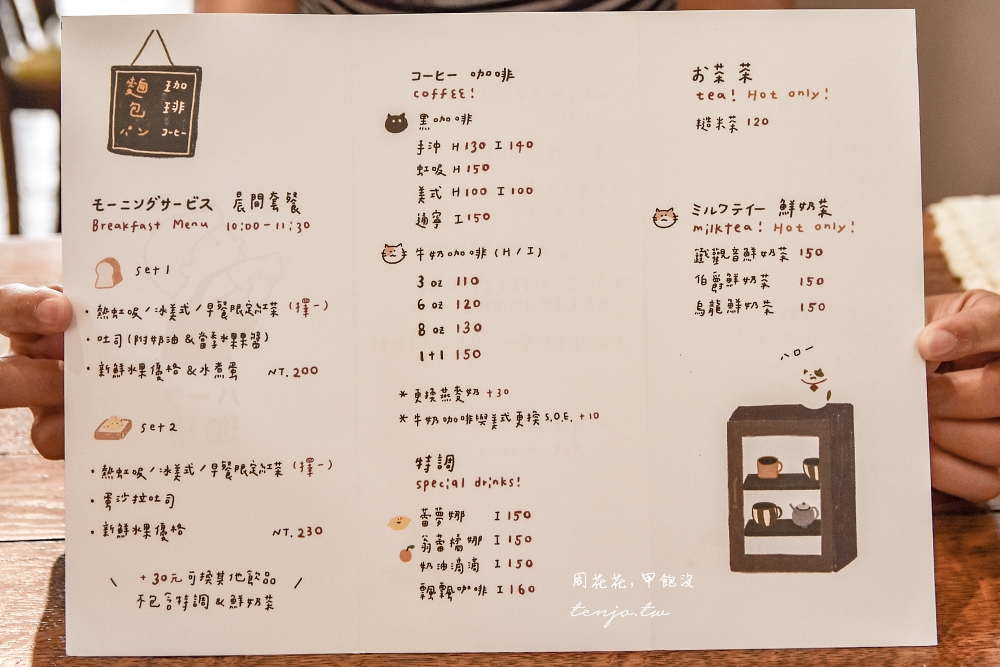 麵包パン
珈琲コーヒー
モーニングサービス 晨間套餐
Breakfast Menu 10:00-11:30
set 1
・熱虹吸/冰美式/早餐限定紅茶(擇一)
・吐司(附奶油&當季水果醬)
・新鮮水果優格&水煮蛋 NT.200
set 2
・熱虹吸/冰美式/早餐限定紅茶(擇一)
・蛋沙拉吐司
・新鮮水果優格 NT.230
\ +30元可換其他飲品 /
不包含特調&鮮奶茶
コーヒー 咖啡
coffee!
黑咖啡
手沖 H130 I140
虹吸 H150
美式 H100 I100
遄寧 I150
牛奶咖啡(H/I)
3 oz 110
6 oz 120
8 oz 130
1+1 150
*更換燕麥奶 +30
*牛奶咖啡與美式更換S.O.E. +10
特調
special drinks!
蕾夢娜 I150
翁蕾橘娜 I150
奶油滴滴 I150
飄飄咖啡 I160
お茶 茶
tea! Hot only!
糙米茶 120
ミルクティー 鮮奶茶
milktea! Hot only!
鐵觀音鮮奶茶 150
伯爵鮮奶茶 150
烏龍鮮奶茶 150
ハロー
周花花,甲飽沒
tenjo.tw